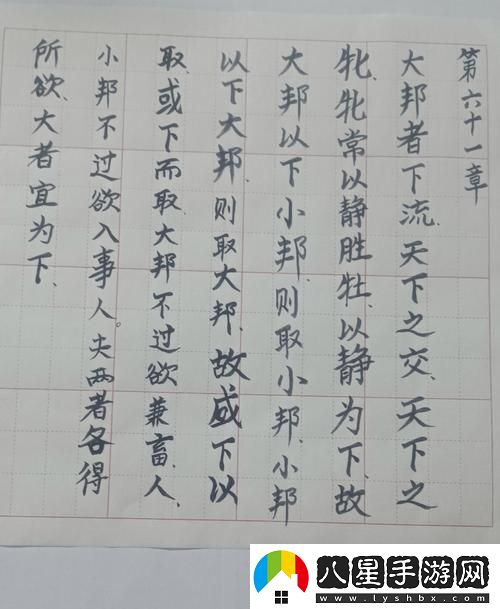 第六十一章
大邦者下流、天下之交、天下之
牝、牝常以静胜牡、以静为下、故
大邦以下小邦、则取小邦、小邦
以下大邦、则取大邦、故或下以
取、或下而取、大邦不过欲兼畜、人、
小邦不过欲入事人。夫两者各得
所欲、大者宜为下、
八星手游网
www.lyshbx.com